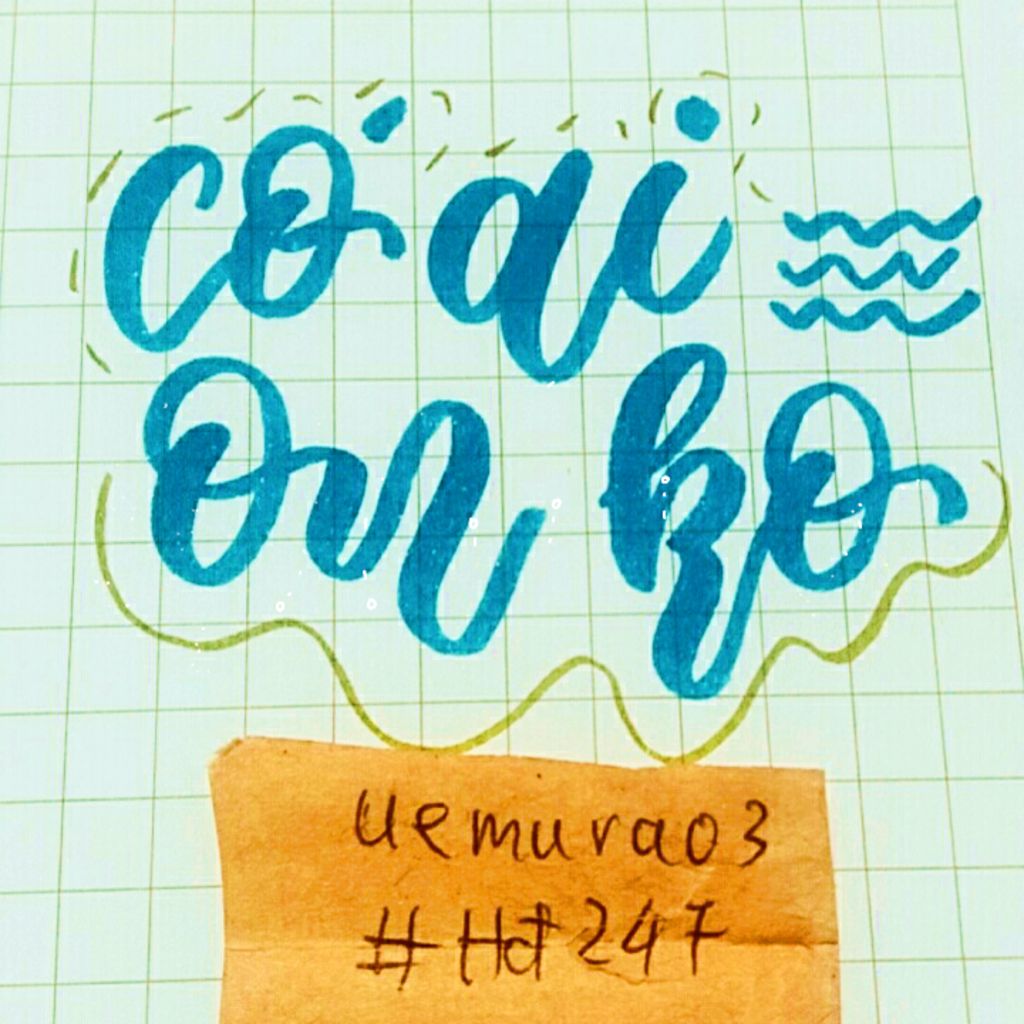 có ai
on ko
uemura03
#Hd247